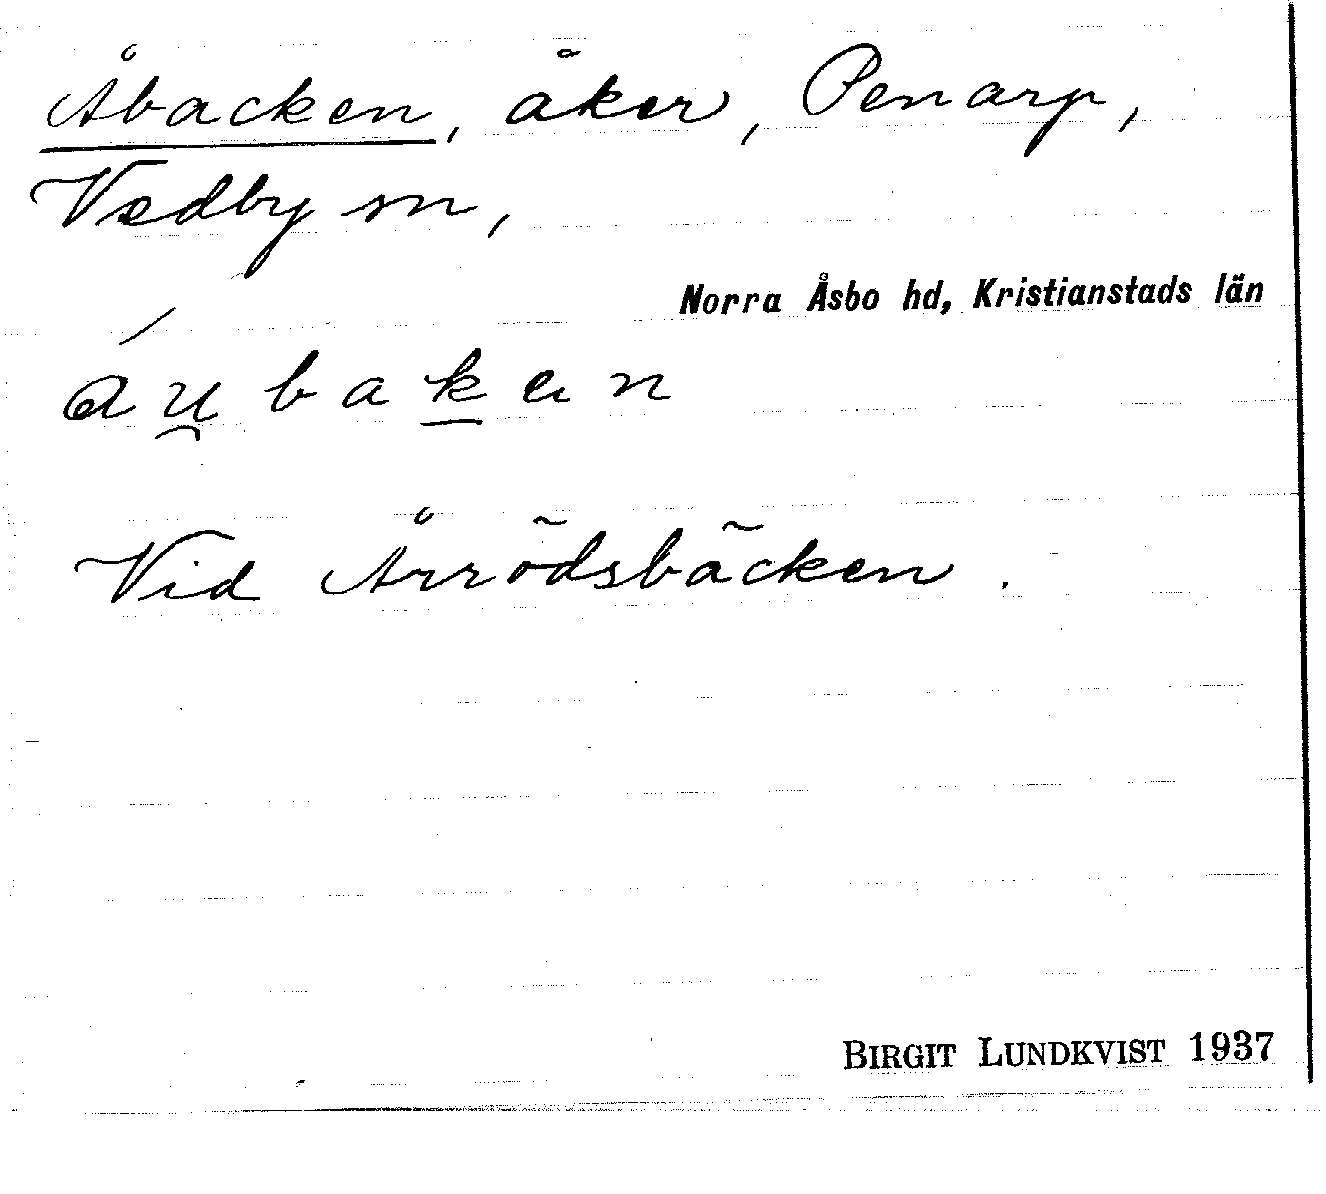 Åbacken, åker, Penarp,
Vedby sn,
Norra Åsbo hd, Kristianstads län
Vid Årrödsbäcken.
BIRGIT LUNDKVIST 1937